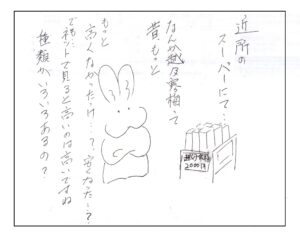 近所の
スーパーにて…
なんか越乃寒梅って
昔、もっと
もっと
高くなかったっけ…?安くなった…?
でも、ネットで見ると高いのは高いですね
種類がいろいろあるの?
越乃寒梅
2000円